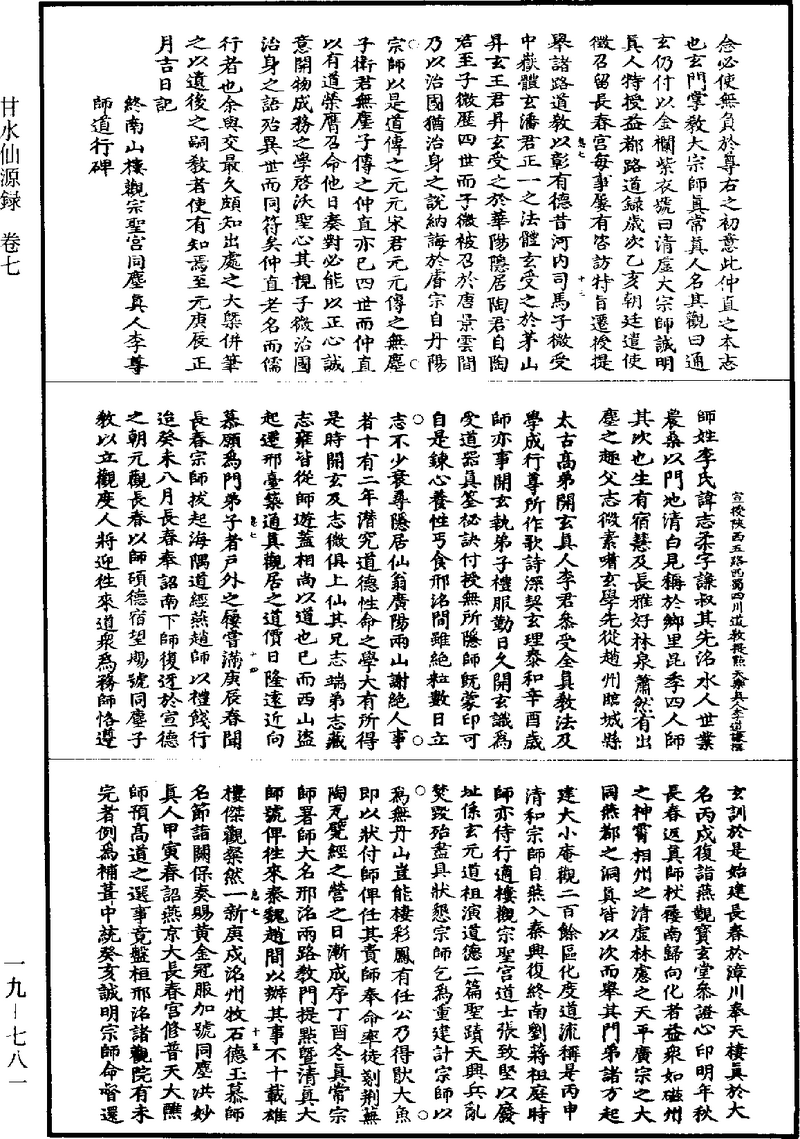 念必使無負於尊右之初意此仲直之本志
也玄門掌教大宗師真常真人名其觀曰通
玄仍付以金襴紫衣號曰清虛大宗師誠明
真人特授益都路道録歲次乙亥朝廷遣使
徵召留長春宮每事屢有咨訪特旨遷授提
舉諸路道教以彰有德昔河內司馬子微受
中嶽體玄潘君正一之法體玄受之於茅山
昇玄王君昇玄受之於華陽隱居陶君自陶
君至子微歷四世而子微被召於唐景雲間
乃以治國猶治身之說納誨於睿宗自丹陽
宗師以是道傳之元元宋君元元傳之無塵
子衛君無塵子傳之仲直亦已四世而仲直
以有道榮膺召命他日奏對必能以正心誠
意開物成務之學啓沃聖心其視子微治國
治身之語殆異世而同符矣仲直老名而儒
行者也余與交最久頗知出處之大槩併筆
之以遺後之嗣教者使有知焉至元庚辰正
月吉日記
終南山樓觀宗聖宮同塵真人李尊
師道行碑
宣授陝西五路西蜀四川道教提點天樂真人李道謙撰
師姓李氏諱志柔字謙叔其先洺水人世業
農桑以門地清白見稱於鄉里昆季四人師
其次也生有宿慧及長雅好林泉蕭然有出
塵之趣父志微素嗜玄學先從趙州臨城縣
太古高弟開玄真人李君叅受全真教法及
學成行尊所作歌詩深契玄理泰和辛酉歲
師亦事開玄執弟子禮服勤日久開玄識為
受道器真筌秘訣付授無所隱師既蒙印可
自是鍊心養性丐食邢洺間雖絶粒數日立
志不少衰尋隱居仙翁廣陽兩山謝絶人事
者十有二年潛究道德性命之學大有所得
是時開玄及志微俱上仙其兄志端弟志藏
志雍皆從師遊蓋相尚以道也已而西山盜
起遷邢臺築通真觀居之道價日隆遠近向
慕願為門弟子者戶外之屨嘗滿庚辰春聞
長春宗師拔起海隅道經燕趙師以禮餞行
迨癸未八月長春奉詔南下師復迓於宣德
之朝元觀長春以師碩德宿望賜號同塵子
教以立觀度人將迎往來道衆為務師恪遵
玄訓於是始建長春於漳川奉天棲真於大
名丙戌復詣燕觀寶玄堂叅證心印明年秋
長春返真師杖屨南歸向化者益衆如磁州
之神霄相州之清虛林慮之天平廣宗之大
同燕都之洞真皆以次而舉其門弟諸方起
建大小庵觀二百餘區化度道流稱是丙申
清和宗師自燕入秦興復終南劉蔣祖庭時
師亦侍行適樓觀宗聖宮道士張致堅以廢
址係玄元道祖演道德二篇聖蹟天興兵亂
焚毀殆盡具狀懇宗師乞為重建計宗師以
為無丹山豈能棲彩鳳有任公乃得猒大魚
即以狀付師俾任其責師奉命率徒剗荆蕪
陶瓦甓經之營之日漸成序丁酉冬真常宗
師署師大名邢洺兩路教門提點暨清真大
師號俾往來秦魏趙間以辦其事不十載雄
樓傑觀粲然一新庚戌洺州牧石德玉慕師
名節詣闕保奏賜黃金冠服加號同塵洪妙
真人甲寅春詔燕京大長春宮修普天大醮
師預高道之選事竟盤桓邢洺諸觀院有未
完者例為補葺中統癸亥誠明宗師命督還
甘水仙源録 卷七
一九—七八一